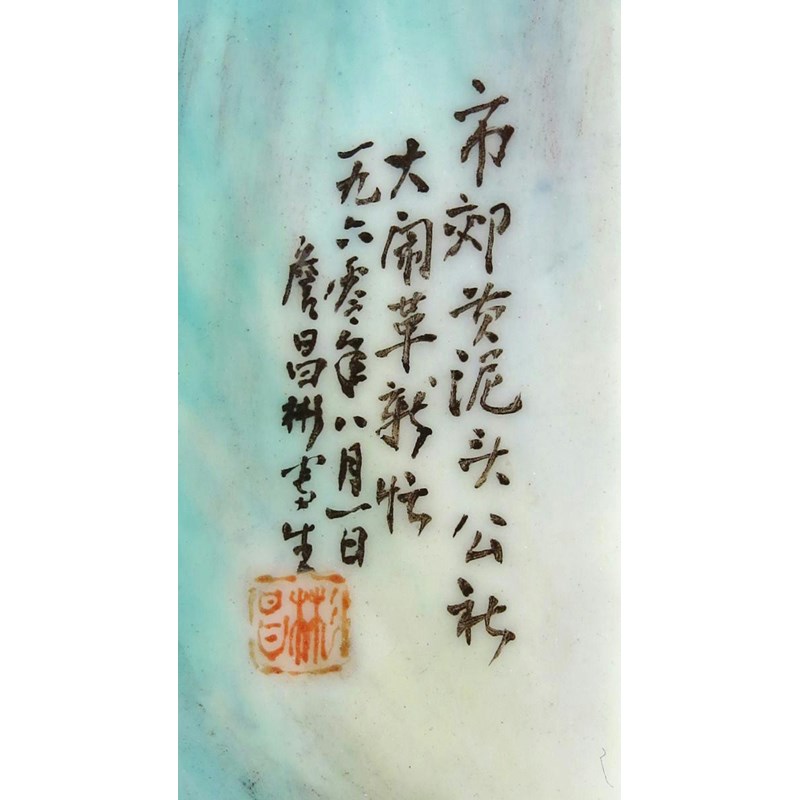 市郊黄泥头公社
大闹革新忙
一九六零年八月一日
詹昌彬写生
昌彬